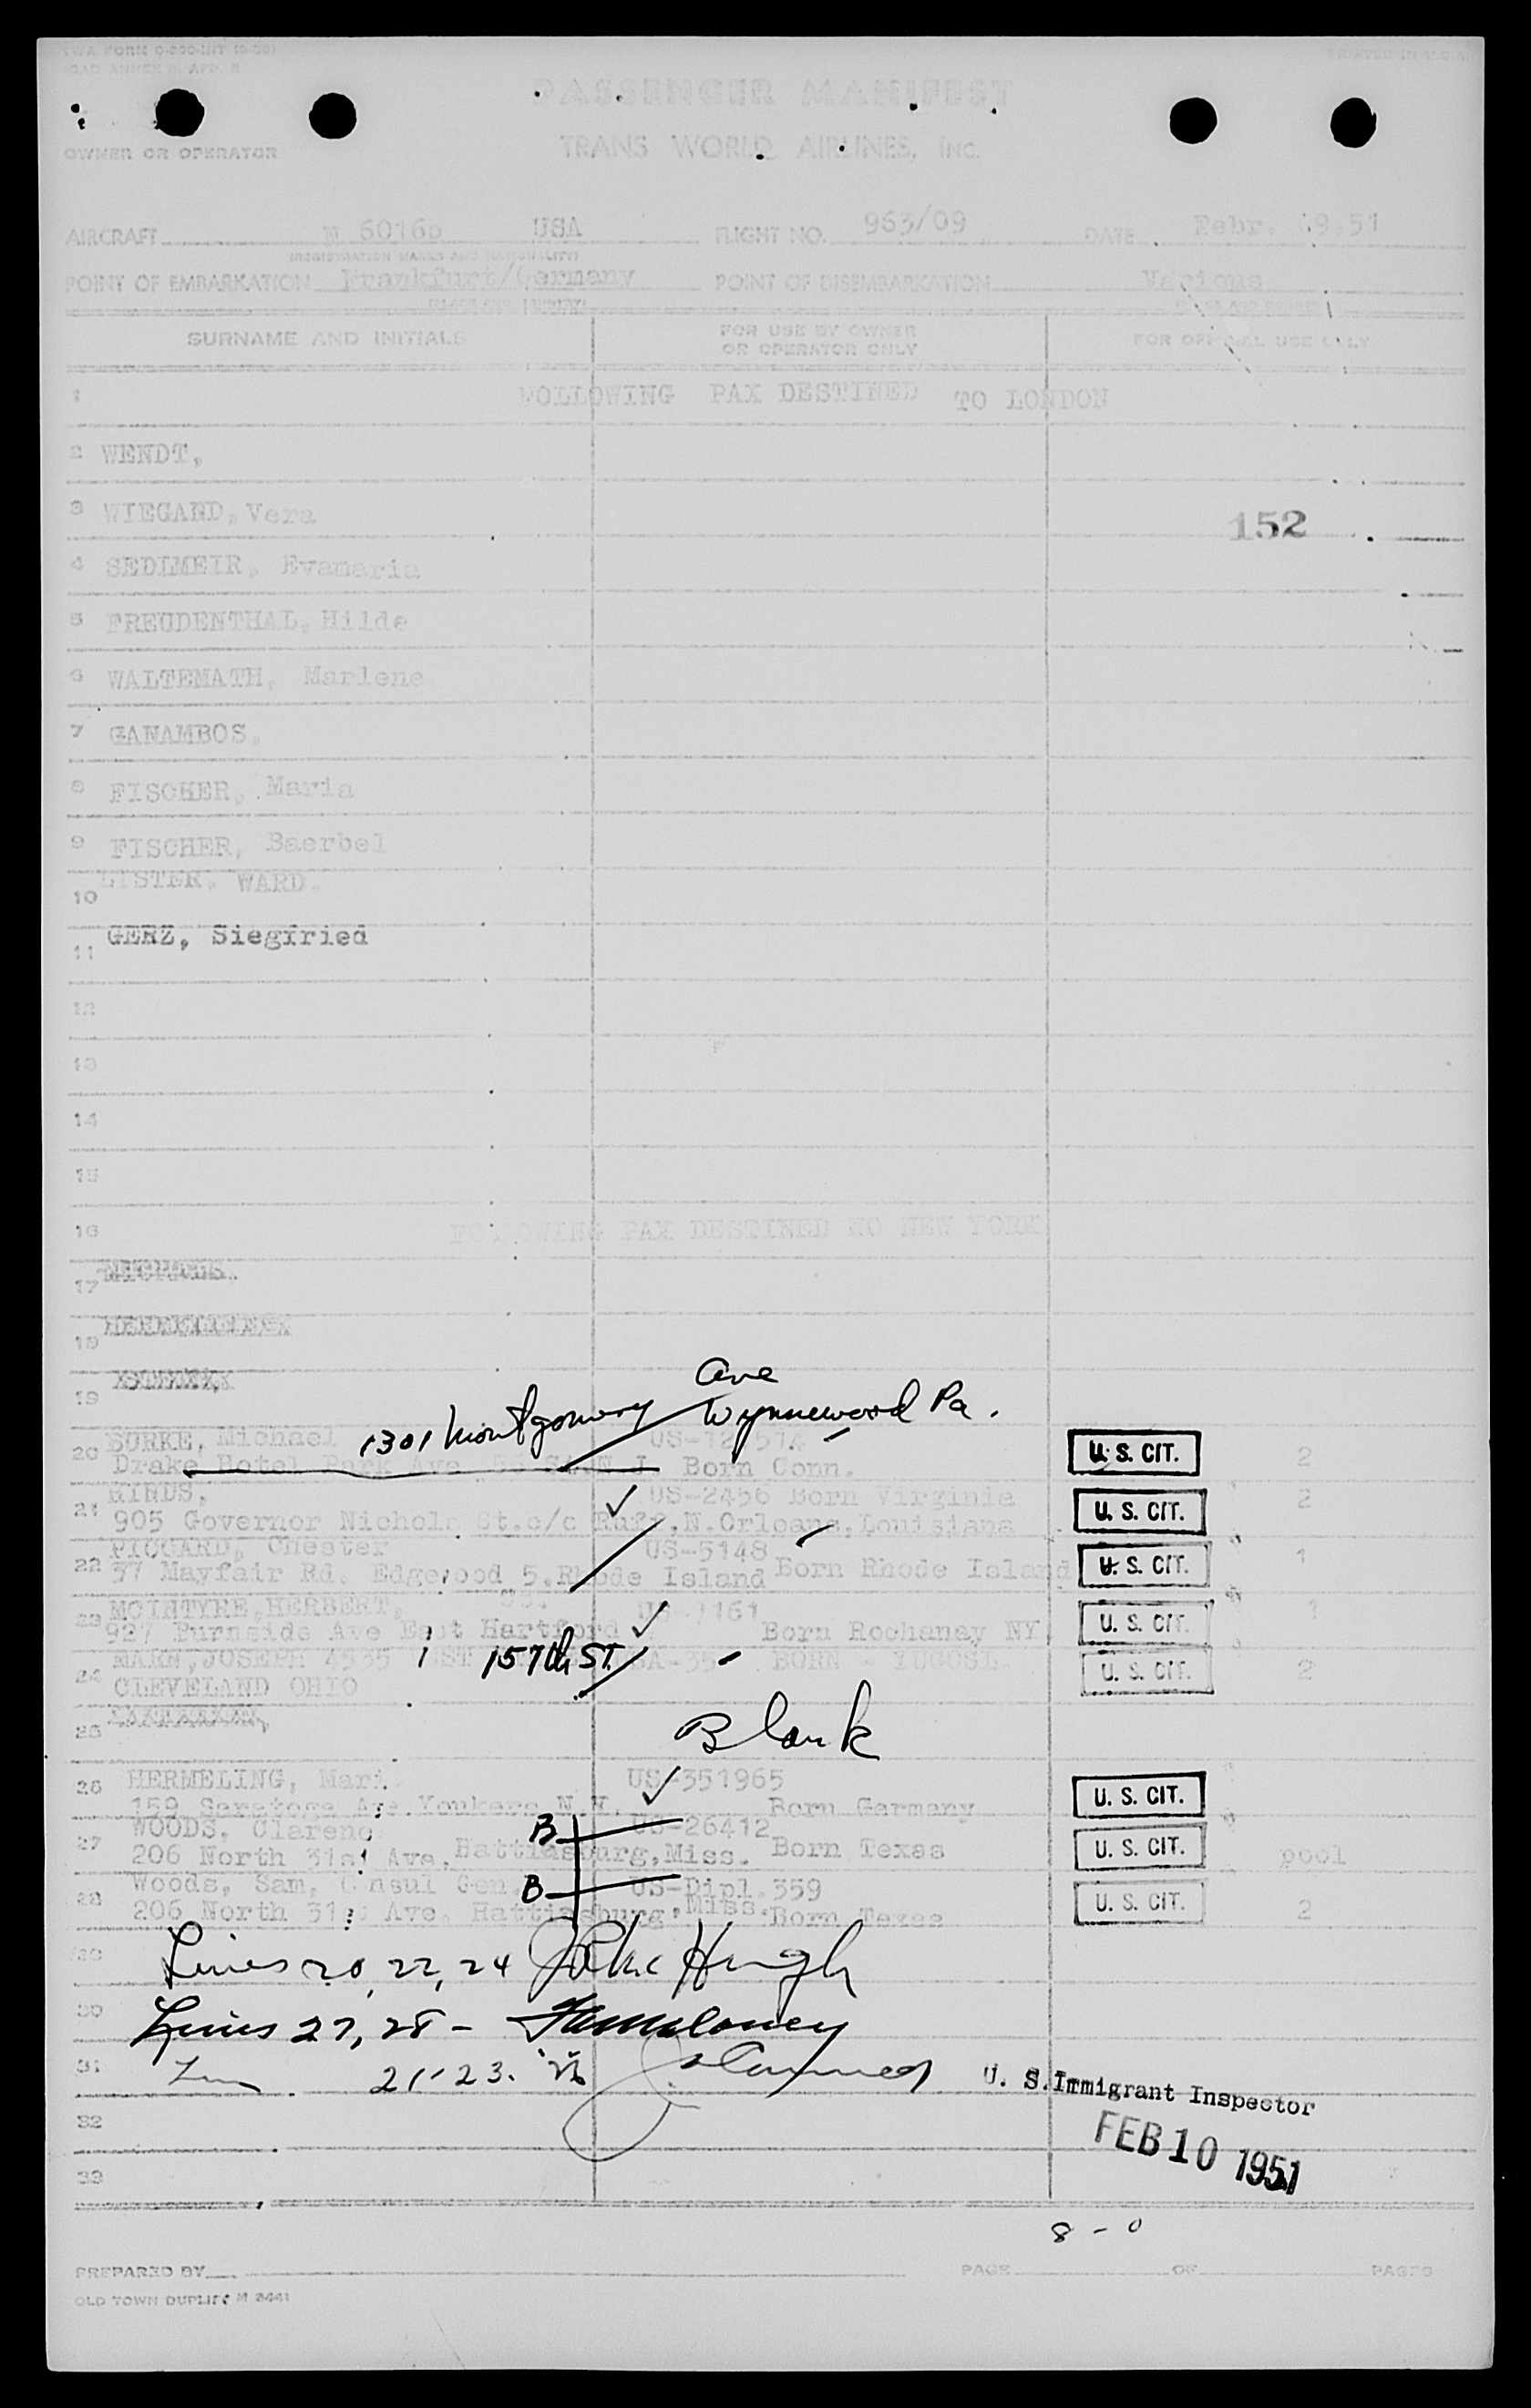 PASSENGER MANIFEST
OWNER OR OPERATOR
TRANS WORLD AIRLINES, INC.
AIRCRAFT USA FLIGHT NO. 963/09 DATE Febr. 9.51
POINT OF EMBARKATION Frankfurt/Germany POINT OF DISEMBARKATION Various
SURNAME AND INITIALS
FOR USE BY OWNER
OR OPERATOR ONLY
FOR OFFICIAL USE ONLY
1 FOLLOWING PAX DESTINED TO LONDON
2 WENDT,
3 WIEGAND, Vera 152
4 SEDIMEIR, Evamaria
5 FREUDENTHAL, Hilde
6 WALTEMATH, Marlene
7 GANAMBOS,
8 FISCHER, Maria
9 FISCHER, Baerbel
10 LYSTER, WARD.
11 GERZ, Siegfried
12
13
14
15
16 FOLLOWING PAX DESTINED TO NEW YORK
17
18
19
Ave
1301 Montgomery Wynnewood Pa.
20 BURKE, Michael U. S. CIT. 2
Drake Hotel Park Ave Born Conn.
21 HINDS, US-2456 Born Virginia U. S. CIT. 2
905 Governor Nichol. St. c/o N. Orleans, Louisiana
22 PICCARD, Chester US-5148 U. S. CIT. 1
37 Mayfair Rd. Edgewood 5. Rhode Island Born Rhode Island
23 MCINTYRE, HERBERT, U. S. CIT. 1
927 Burnside Ave East Hartford Born Rochaney NY
24 JOSEPH 157th ST. BORN - YUGOSL. U. S. CIT. 2
CLEVELAND OHIO
25 Blank
26 HERMELING, Mari US-351965 U. S. CIT.
159 Saratoga Ave. Yonkers N.Y. Born Germany
27 WOODS, Clarenc B US-26412 U. S. CIT. pool
206 North 31st Ave. Hattiesburg, Miss. Born Texas
28 Woods, Sam, Consul Gen B US-Dipl. 359 U. S. CIT. 2
206 North 31st Ave. Hattiesburg, Miss. Born Texas
29 Lines 20, 22, 24
30 Lines 27, 28 -
31 21-23. 26 U. S. Immigrant Inspector
32 FEB 10 1951
33
8 - 0
PREPARED BY PAGE OF PAGES
OLD TOWN